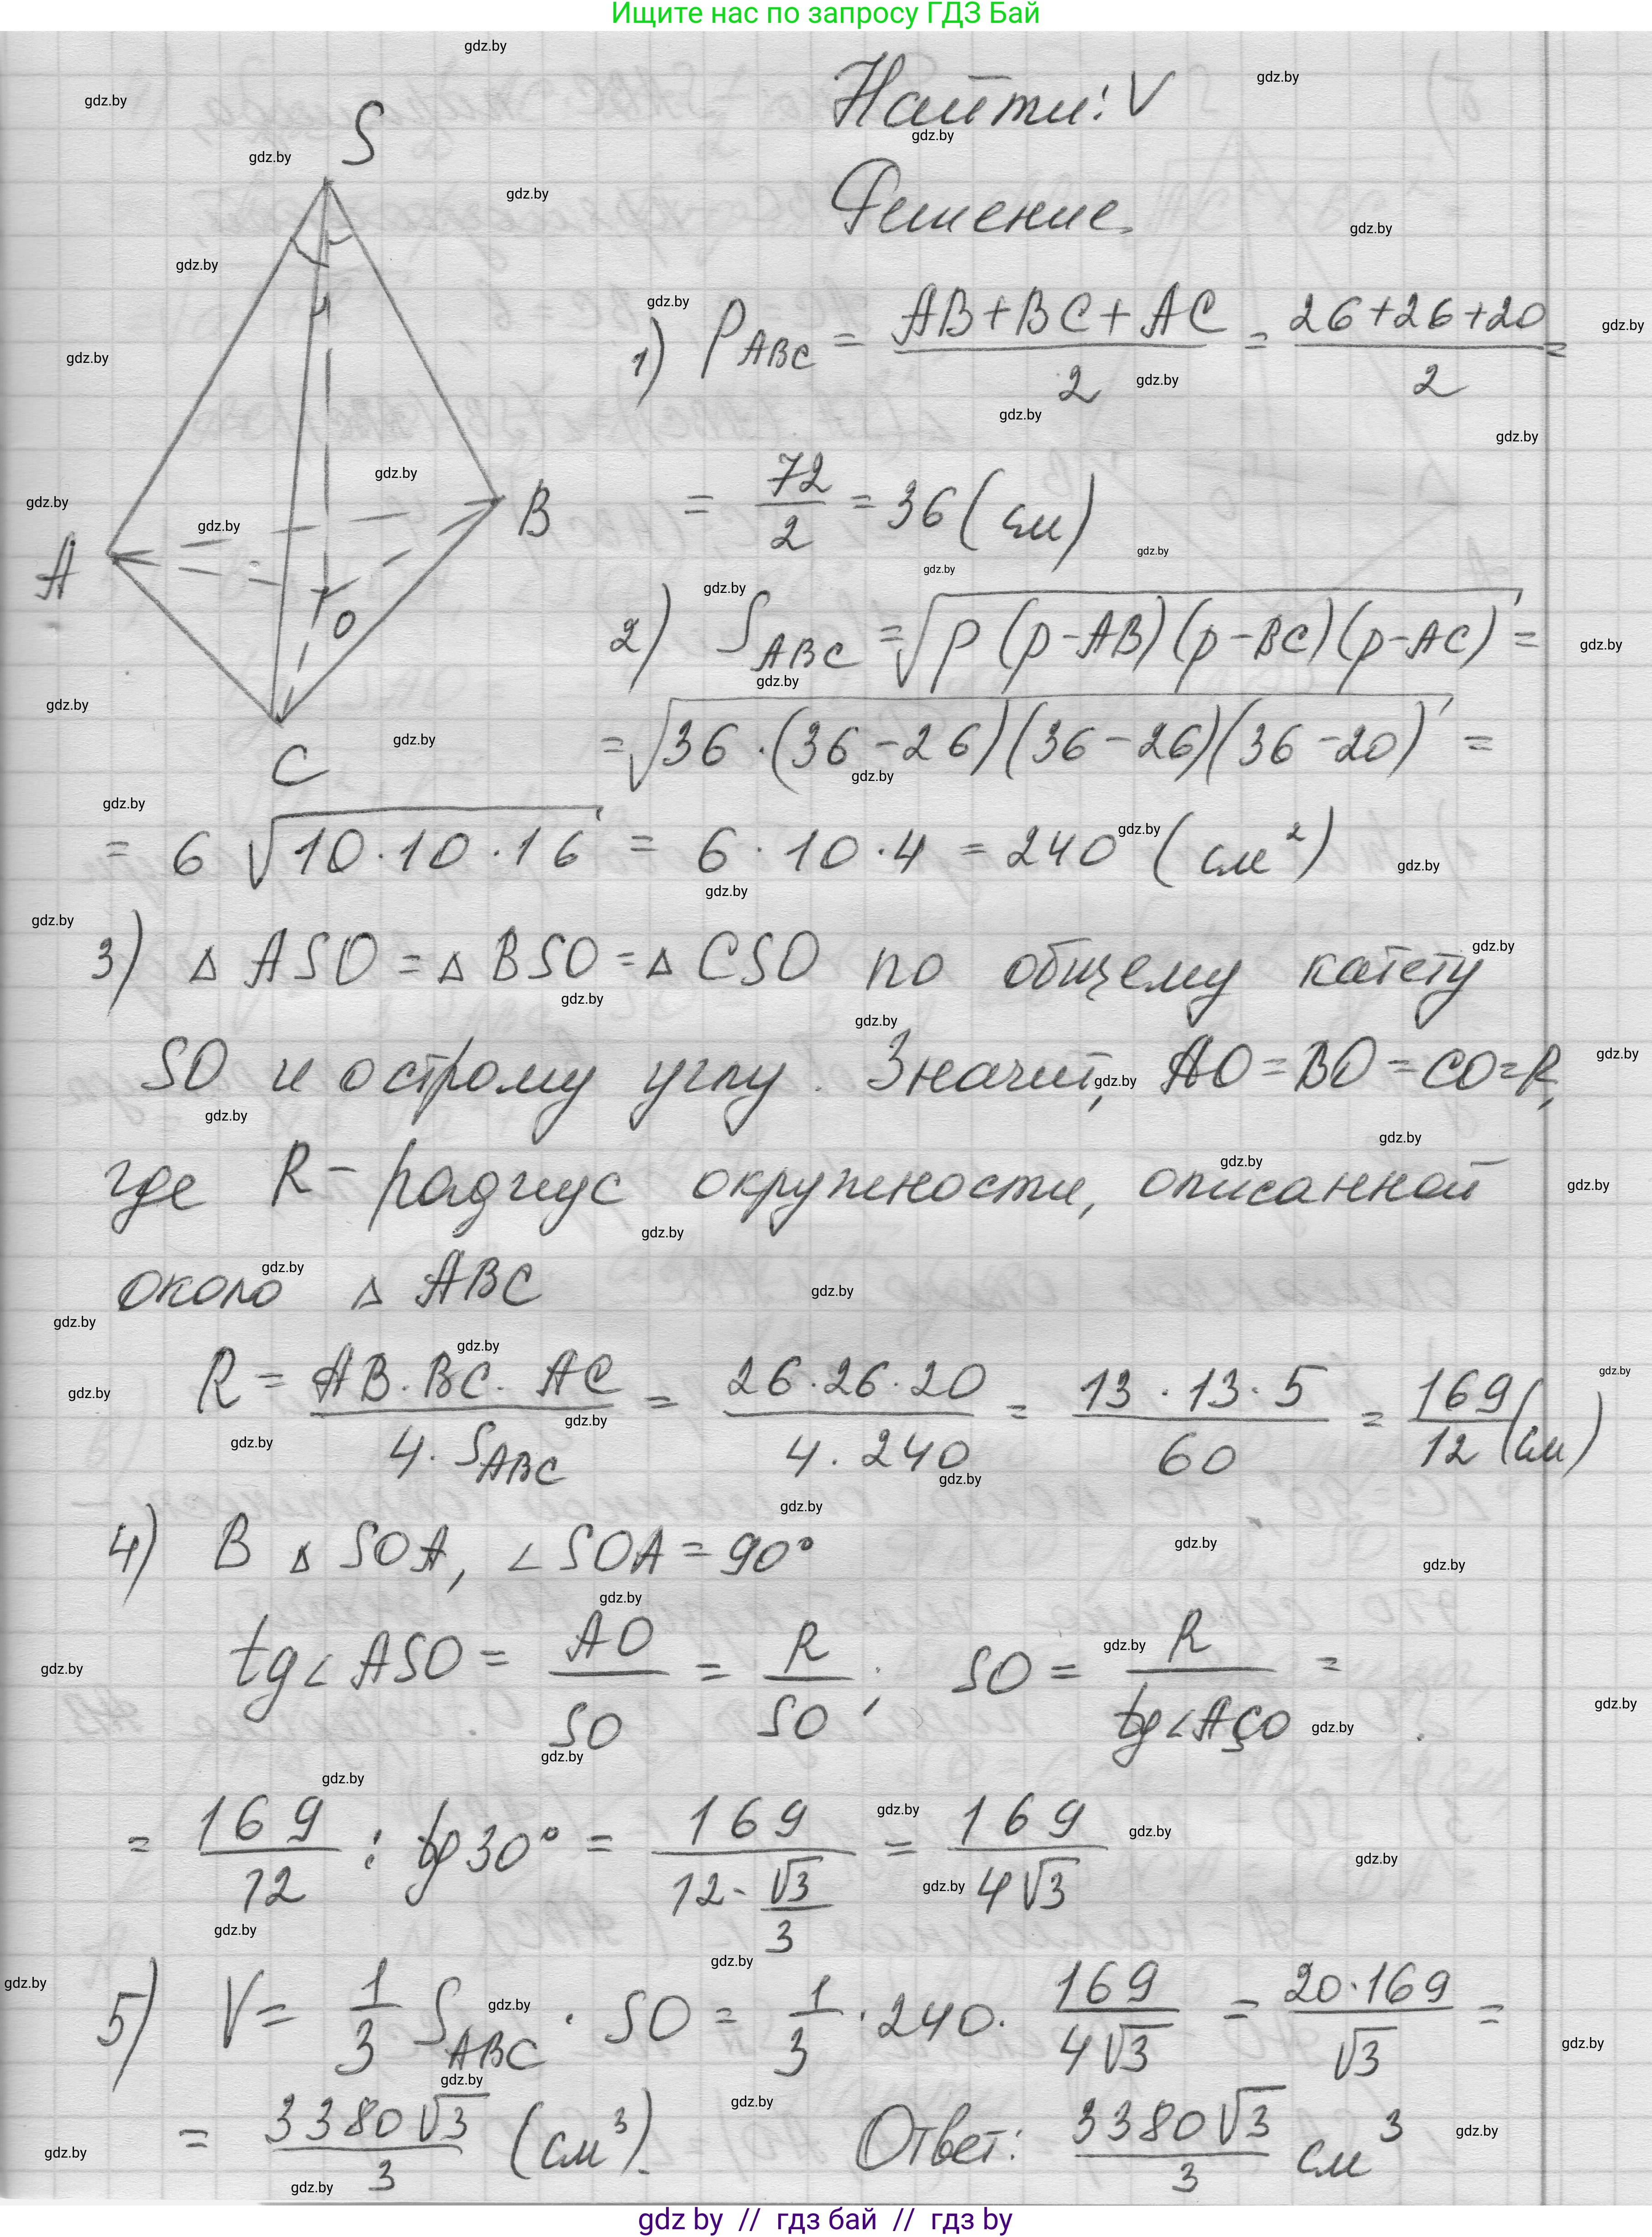 Ищите нас по запросу ГДЗ Бай
Найти: V
Решение.
S
A
B
C
O
1) P_ABC = (AB+BC+AC)/2 = (26+26+20)/2 =
= 72/2 = 36 (см)
2) S_ABC = √(p(p-AB)(p-BC)(p-AC)) =
= √(36·(36-26)(36-26)(36-20)) =
= 6 √(10·10·16) = 6·10·4 = 240 (см²)
3) Δ ASO = Δ BSO = Δ CSO по общему катету
SO и острому углу. Значит, AO = BO = CO = R,
где R - радиус окружности, описанной
около Δ ABC
R = (AB·BC·AC)/(4·S_ABC) = (26·26·20)/(4·240) = (13·13·5)/60 = 169/12 (см)
4) В Δ SOA, ∠SOA = 90°
tg∠ASO = AO/SO = R/SO; SO = R/(tg∠ASO) =
= 169/12 : tg30° = 169/(12·√3/3) = 169/(4√3)
5) V = 1/3 S_ABC · SO = 1/3 · 240 · 169/(4√3) = (20·169)/√3 =
= (3380√3)/3 (см³). Ответ: (3380√3)/3 см³
gdz by // гдз бай // гдз by